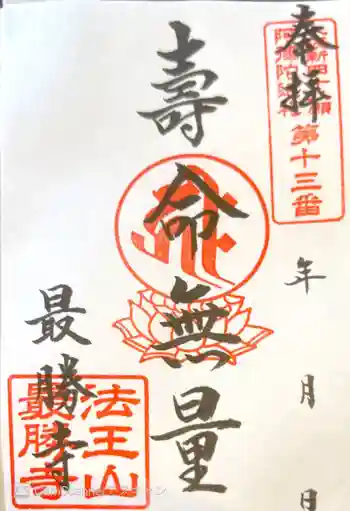 奉拝
第十三番
壽命無量
年 月 日
最勝寺
法王山
最勝寺